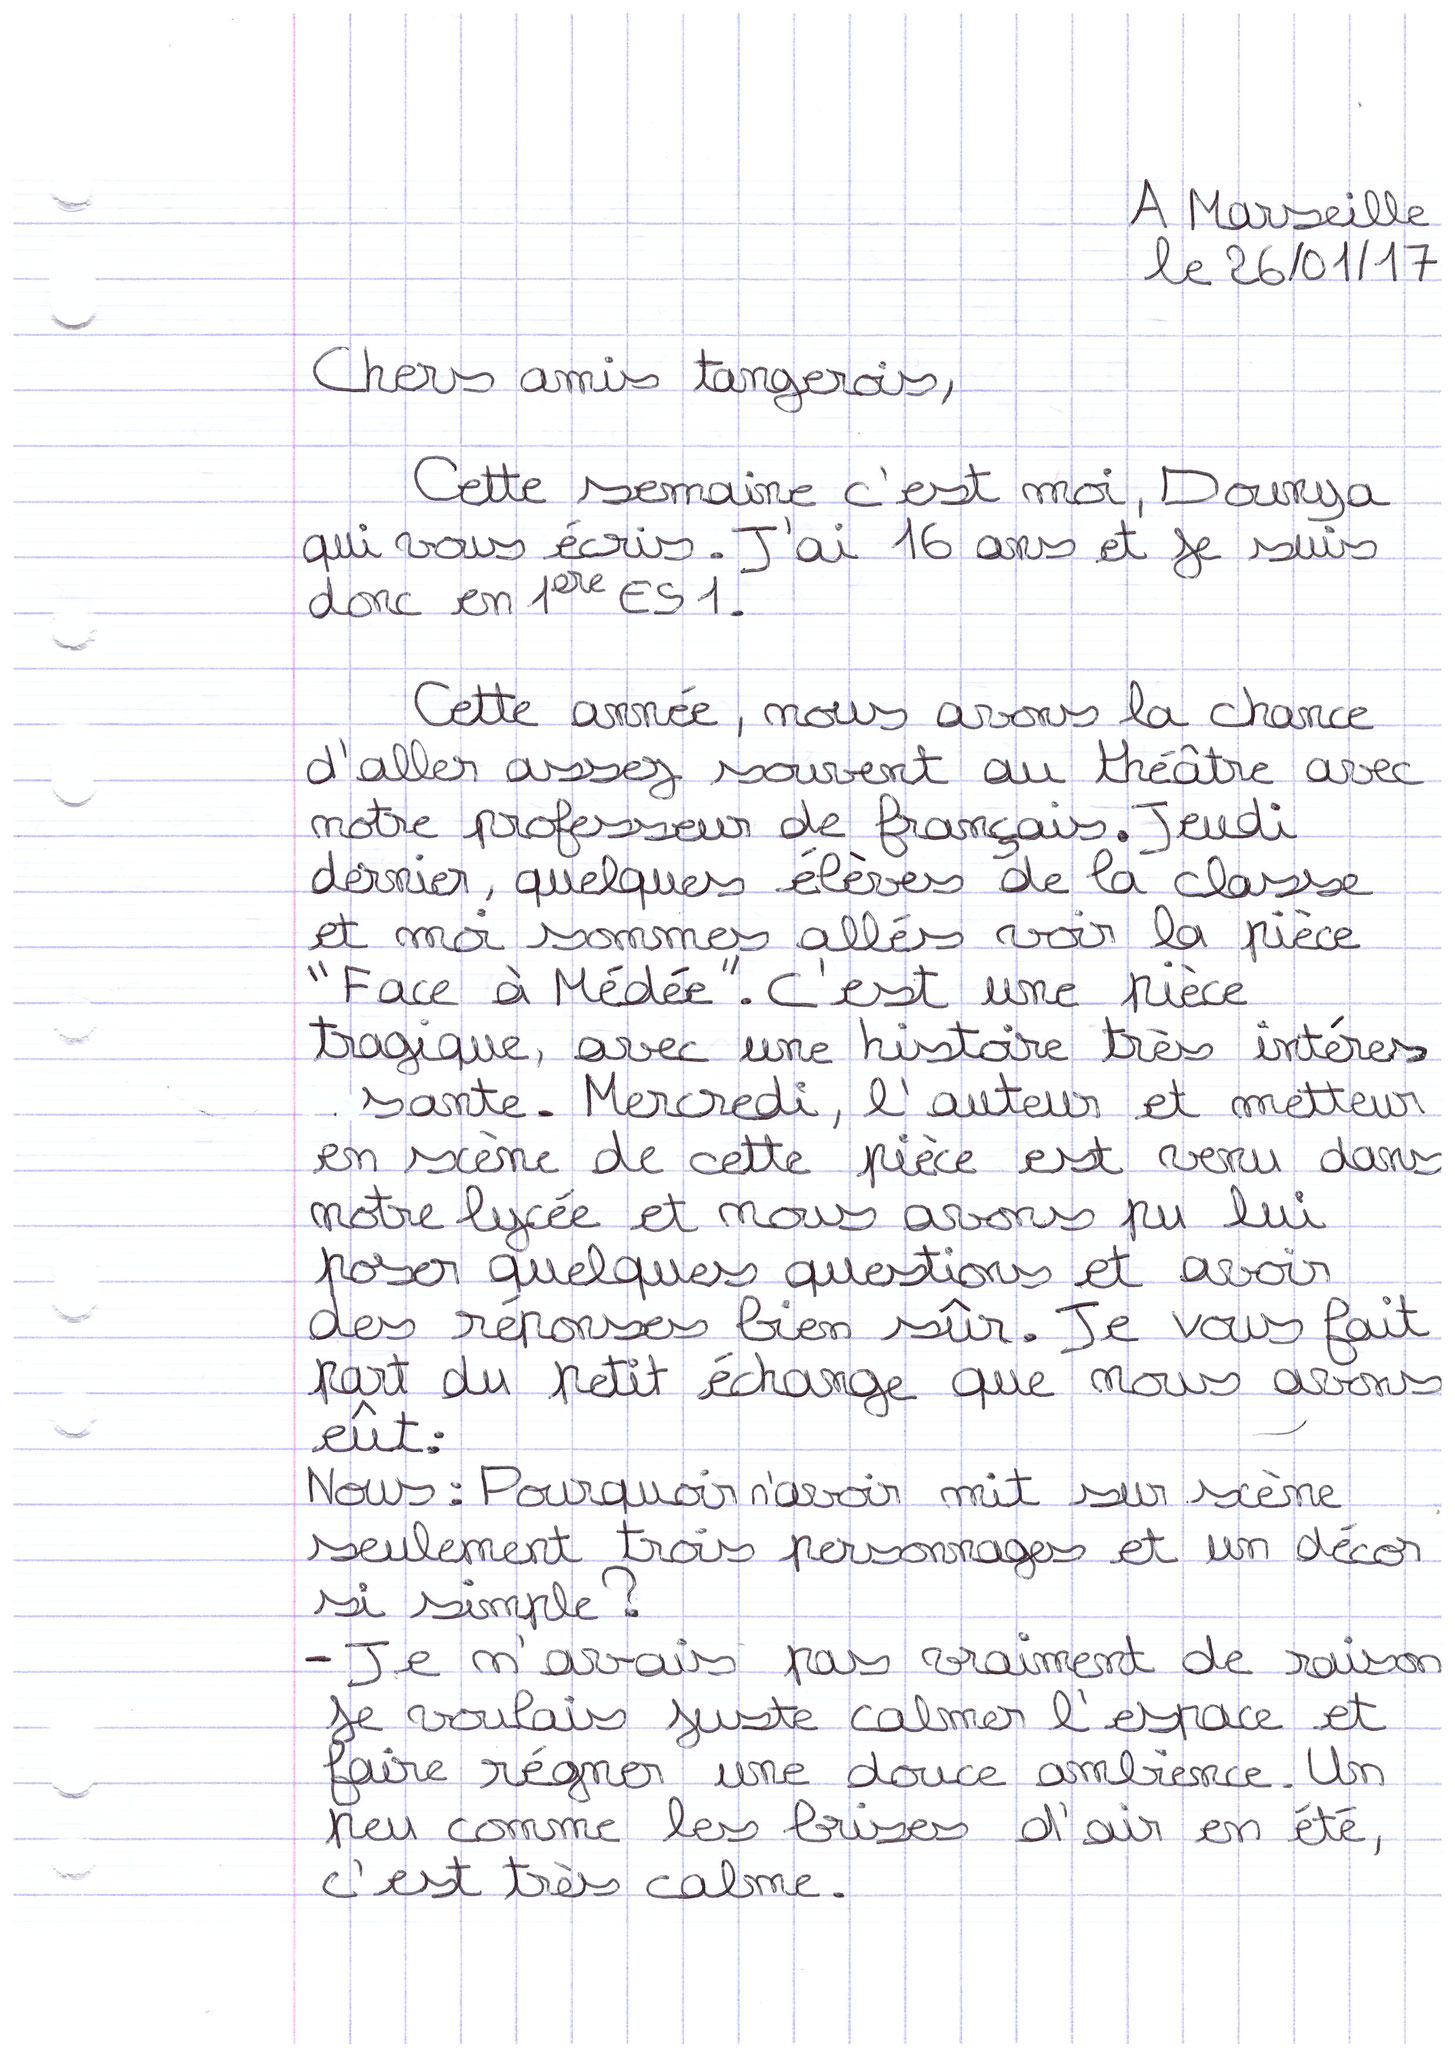 A Marseille
le 26/01/17
Chers amis tangerois,
Cette semaine c'est moi, Dounya
qui vous écris. J'ai 16 ans et je suis
donc en 1ere ES1.
Cette année, nous avons la chance
d'aller assez souvent au théâtre avec
notre professeur de français. Jeudi
dernier, quelques élèves de la classe
et moi sommes allés voir la pièce
"Face à Médée". C'est une pièce
tragique, avec une histoire très intéres
sante. Mercredi, l'auteur et metteur
en scène de cette pièce est venu dans
notre lycée et nous avons pu lui
poser quelques questions et avoir
des réponses bien sûr. Je vous fait
part du petit échange que nous avons
eût:
Nous: Pourquoi n'avoir mit sur scène
seulement trois personnages et un décor
si simple?
- Je n'avais pas vraiment de raison
je voulais juste calmer l'espace et
faire régner une douce ambience. Un
peu comme les brises d'air en été,
c'est très calme.